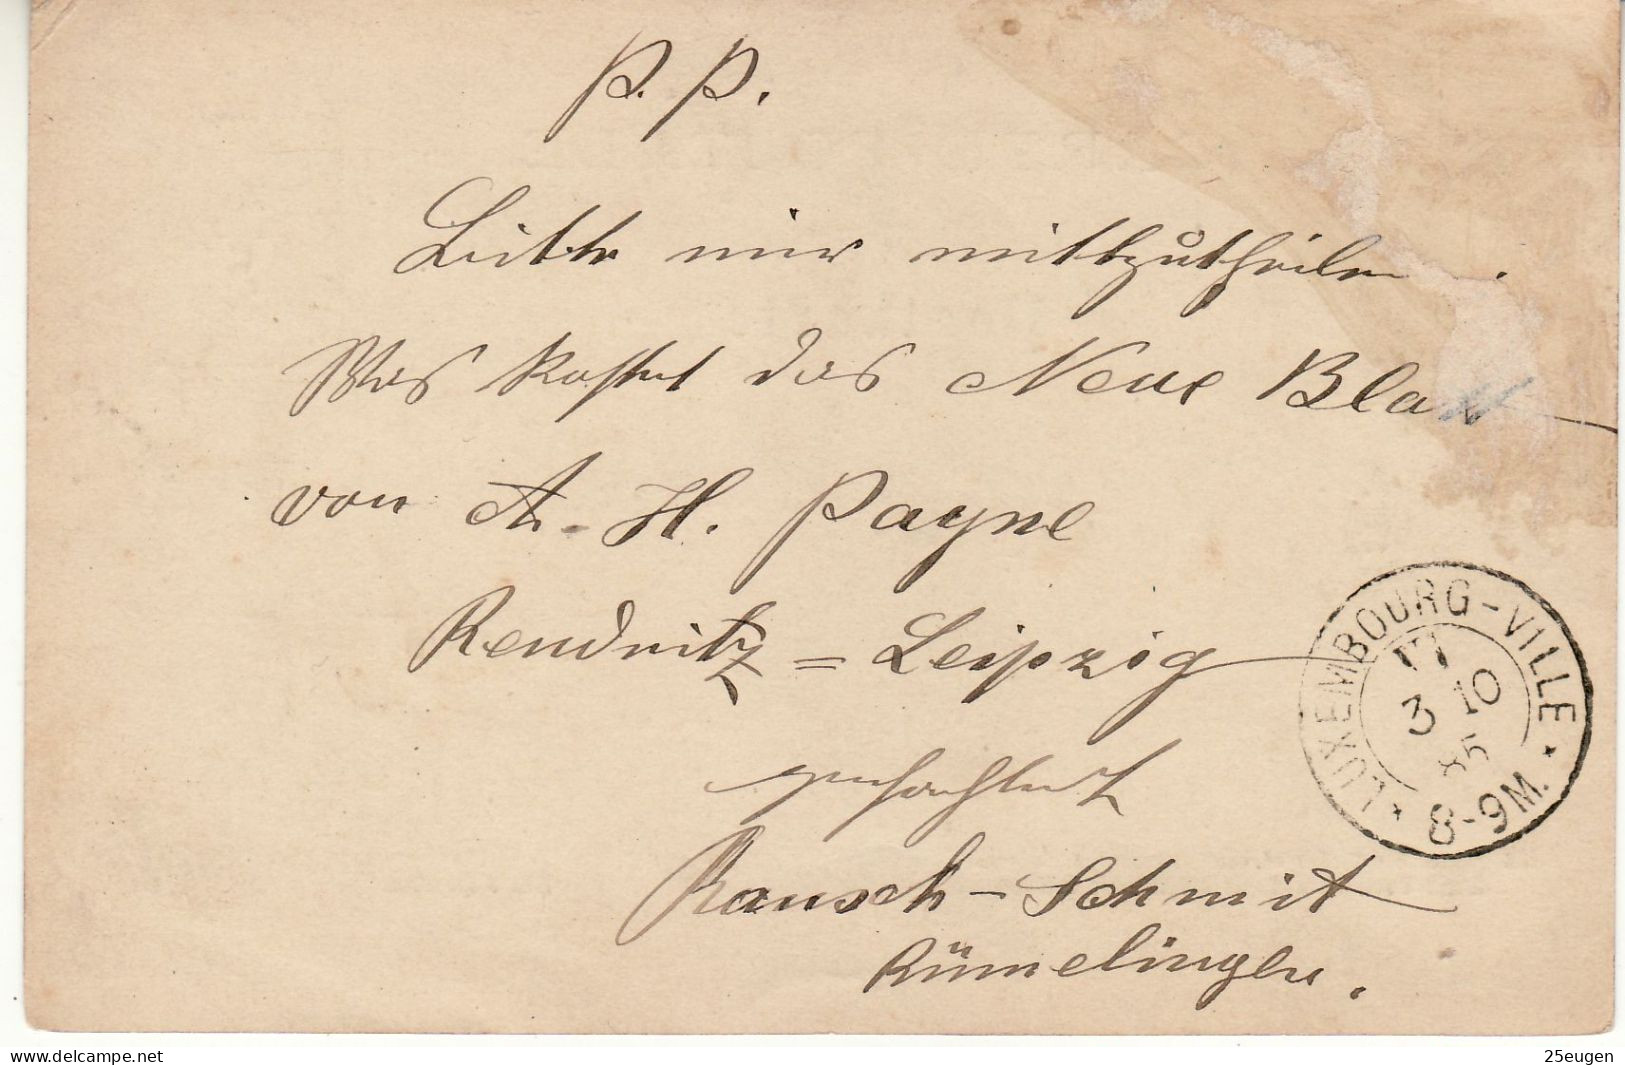 P. P.
Bitte mir mitzutheilen
Was kostet das Neue Blatt
von A. H. Payne
Reudnitz = Leipzig
Rausch - Schmit
Rümelingen.
LUXEMBOURG-VILLE
VI
3 10
85
8-9M.
delcampe.net
25eugen